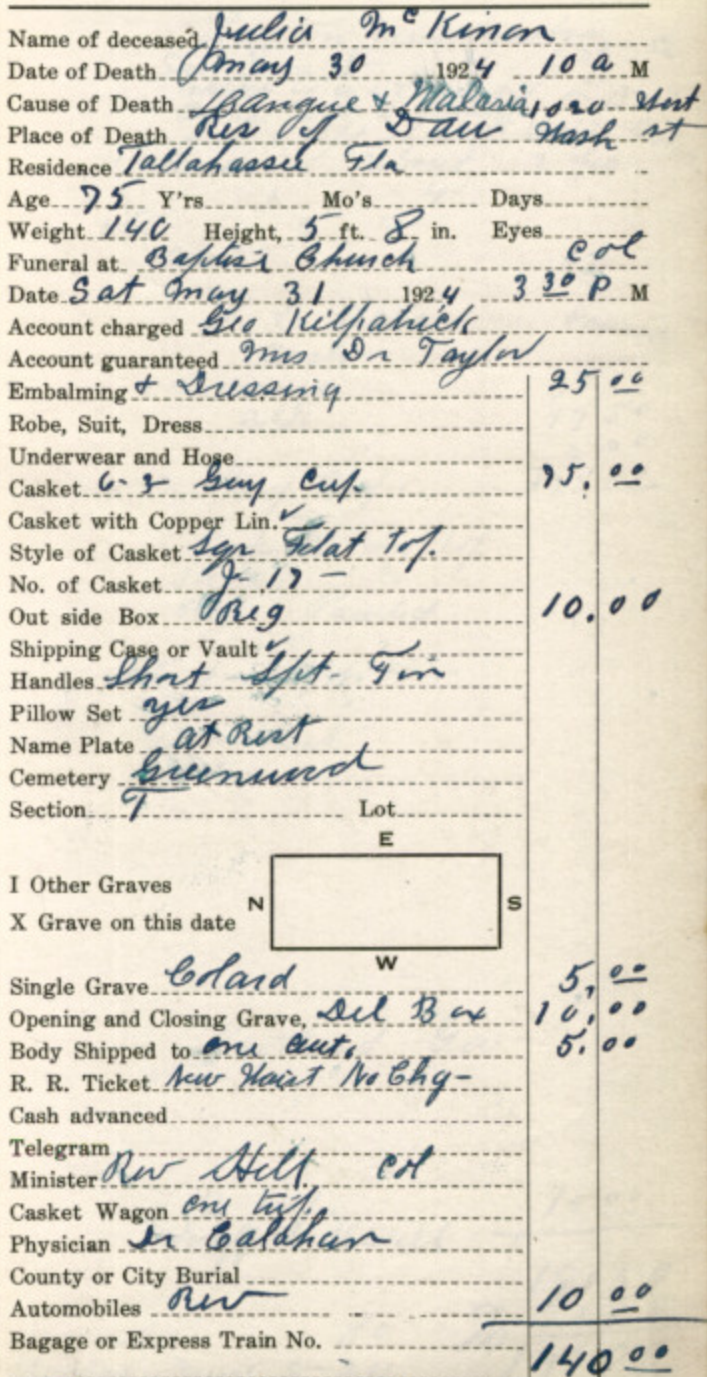 Name of deceased Julia Mc Kinon
Date of Death May 30 1924 10 a M
Cause of Death Dangue & Malaria 1020 West
Place of Death Res of Dau Wash st
Residence Tallahassee Fla
Age 75 Y'rs Mo's Days
Weight 140 Height, 5 ft. 8 in. Eyes
Funeral at Baptist Church Col
Date Sat May 31 1924 3 30 P M
Account charged Geo Kilpatrick
Account guaranteed Mrs Dr Taylor
Embalming & Dressing 25 00
Robe, Suit, Dress
Underwear and Hose
Casket 6-3 Gray 75. 00
Casket with Copper Lin. ✓
Style of Casket Sqr Flat Top.
No. of Casket J-17 -
Out side Box Reg 10.00
Shipping Case or Vault ✓
Handles Short
Pillow Set yes
Name Plate at Rest
Cemetery Greenwood
Section T Lot
E
I Other Graves
N S
X Grave on this date
W
Single Grave Colard 5, 00
Opening and Closing Grave, Del Box 10.00
Body Shipped to one auto. 5.00
R. R. Ticket New Waist No Chg-
Cash advanced
Telegram
Minister Rev Hill Col
Casket Wagon one trip.
Physician Dr Calahan
County or City Burial
Automobiles Rev 10 00
Bagage or Express Train No. 140 00